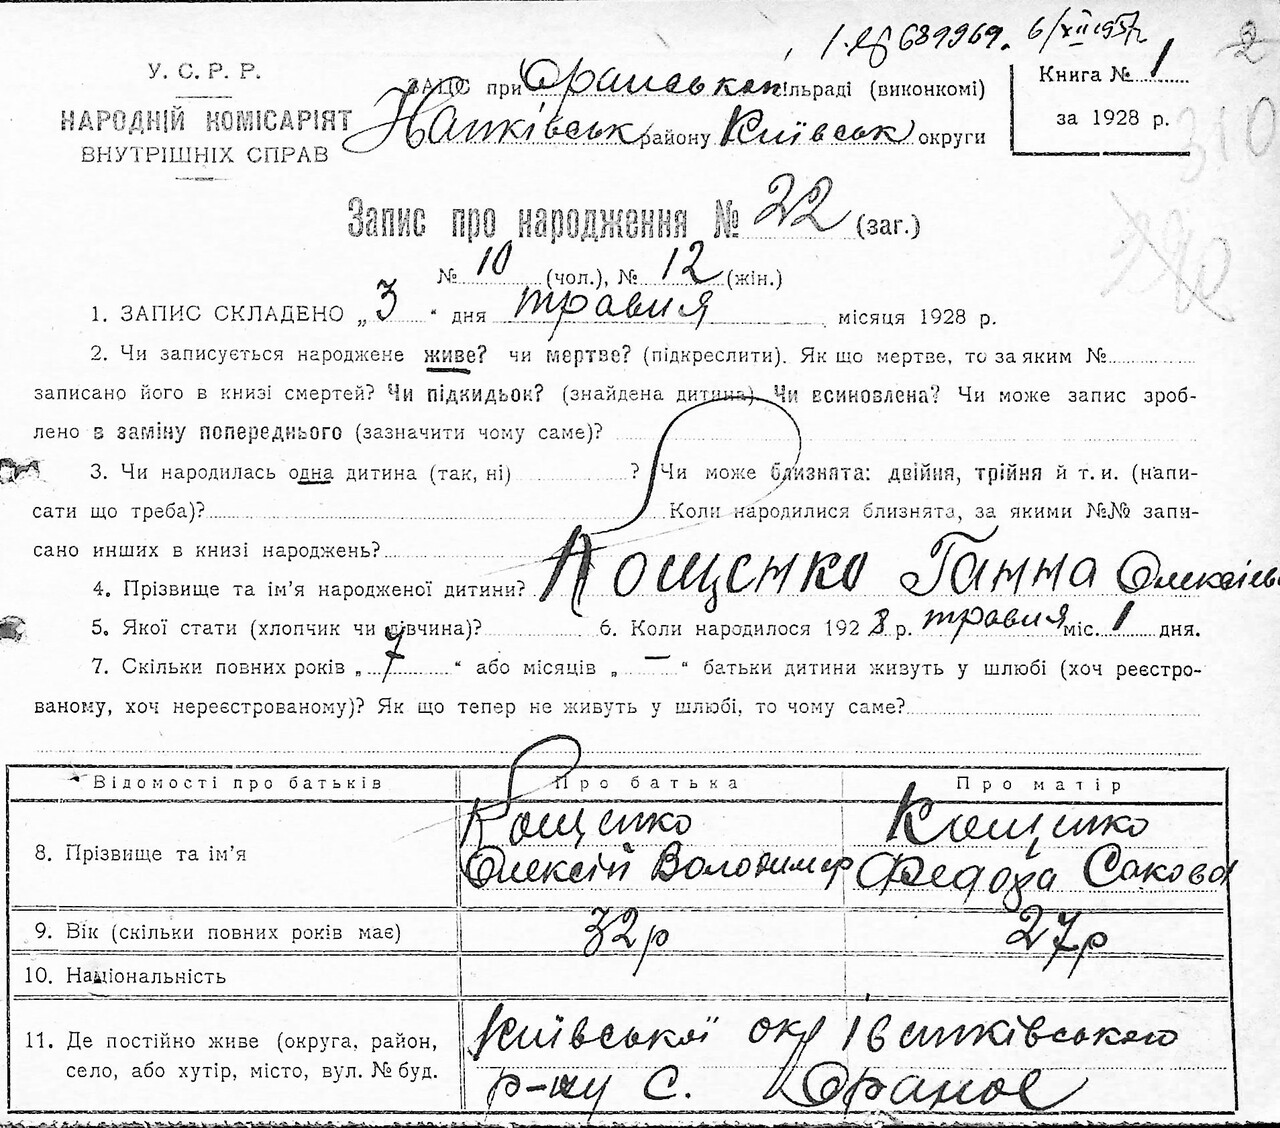 689969. 6/XII 1957р
2
У. С. Р. Р.
НАРОДНІЙ КОМІСАРІЯТ
ВНУТРІШНІХ СПРАВ
ЗАЦС при Оранській сільраді (виконкомі)
району Київськ округи
Книга № 1
за 1928 р.
310
Запис про народження № 22 (заг.)
№ 10 (чол.), № 12 (жін.)
1. ЗАПИС СКЛАДЕНО „ 3 “ дня травня місяця 1928 р.
2. Чи записується народжене живе? чи мертве? (підкреслити). Як що мертве, то за яким №
записано його в книзі смертей? Чи підкидьок? (знайдена дитина). Чи всиновлена? Чи може запис зроб-
лено в заміну попереднього (зазначити чому саме)?
3. Чи народилась одна дитина (так, ні) ? Чи може близнята: двійня, трійня й т. и. (напи-
сати що треба)? Коли народилися близнята, за якими №№ запи-
сано инших в книзі народжень?
4. Прізвище та ім'я народженої дитини? Кощенко Ганна Олексіев
5. Якої стати (хлопчик чи дівчина)? 6. Коли народилося 192 8 р. травня міс. 1 дня.
7. Скільки повних років „ 7 “ або місяців „ — “ батьки дитини живуть у шлюбі (хоч реєстро-
ваному, хоч нереєстрованому)? Як що тепер не живуть у шлюбі, то чому саме?
Відомості про батьків Про батька Про матір
8. Прізвище та ім'я Кощенко Олексій Володимер Кощенко Федоза Сакова
9. Вік (скільки повних років має) 32р 27р
10. Національність
11. Де постійно живе (округа, район, Київської окр Іванківського
село, або хутір, місто, вул. № буд. р-ну с. Оране